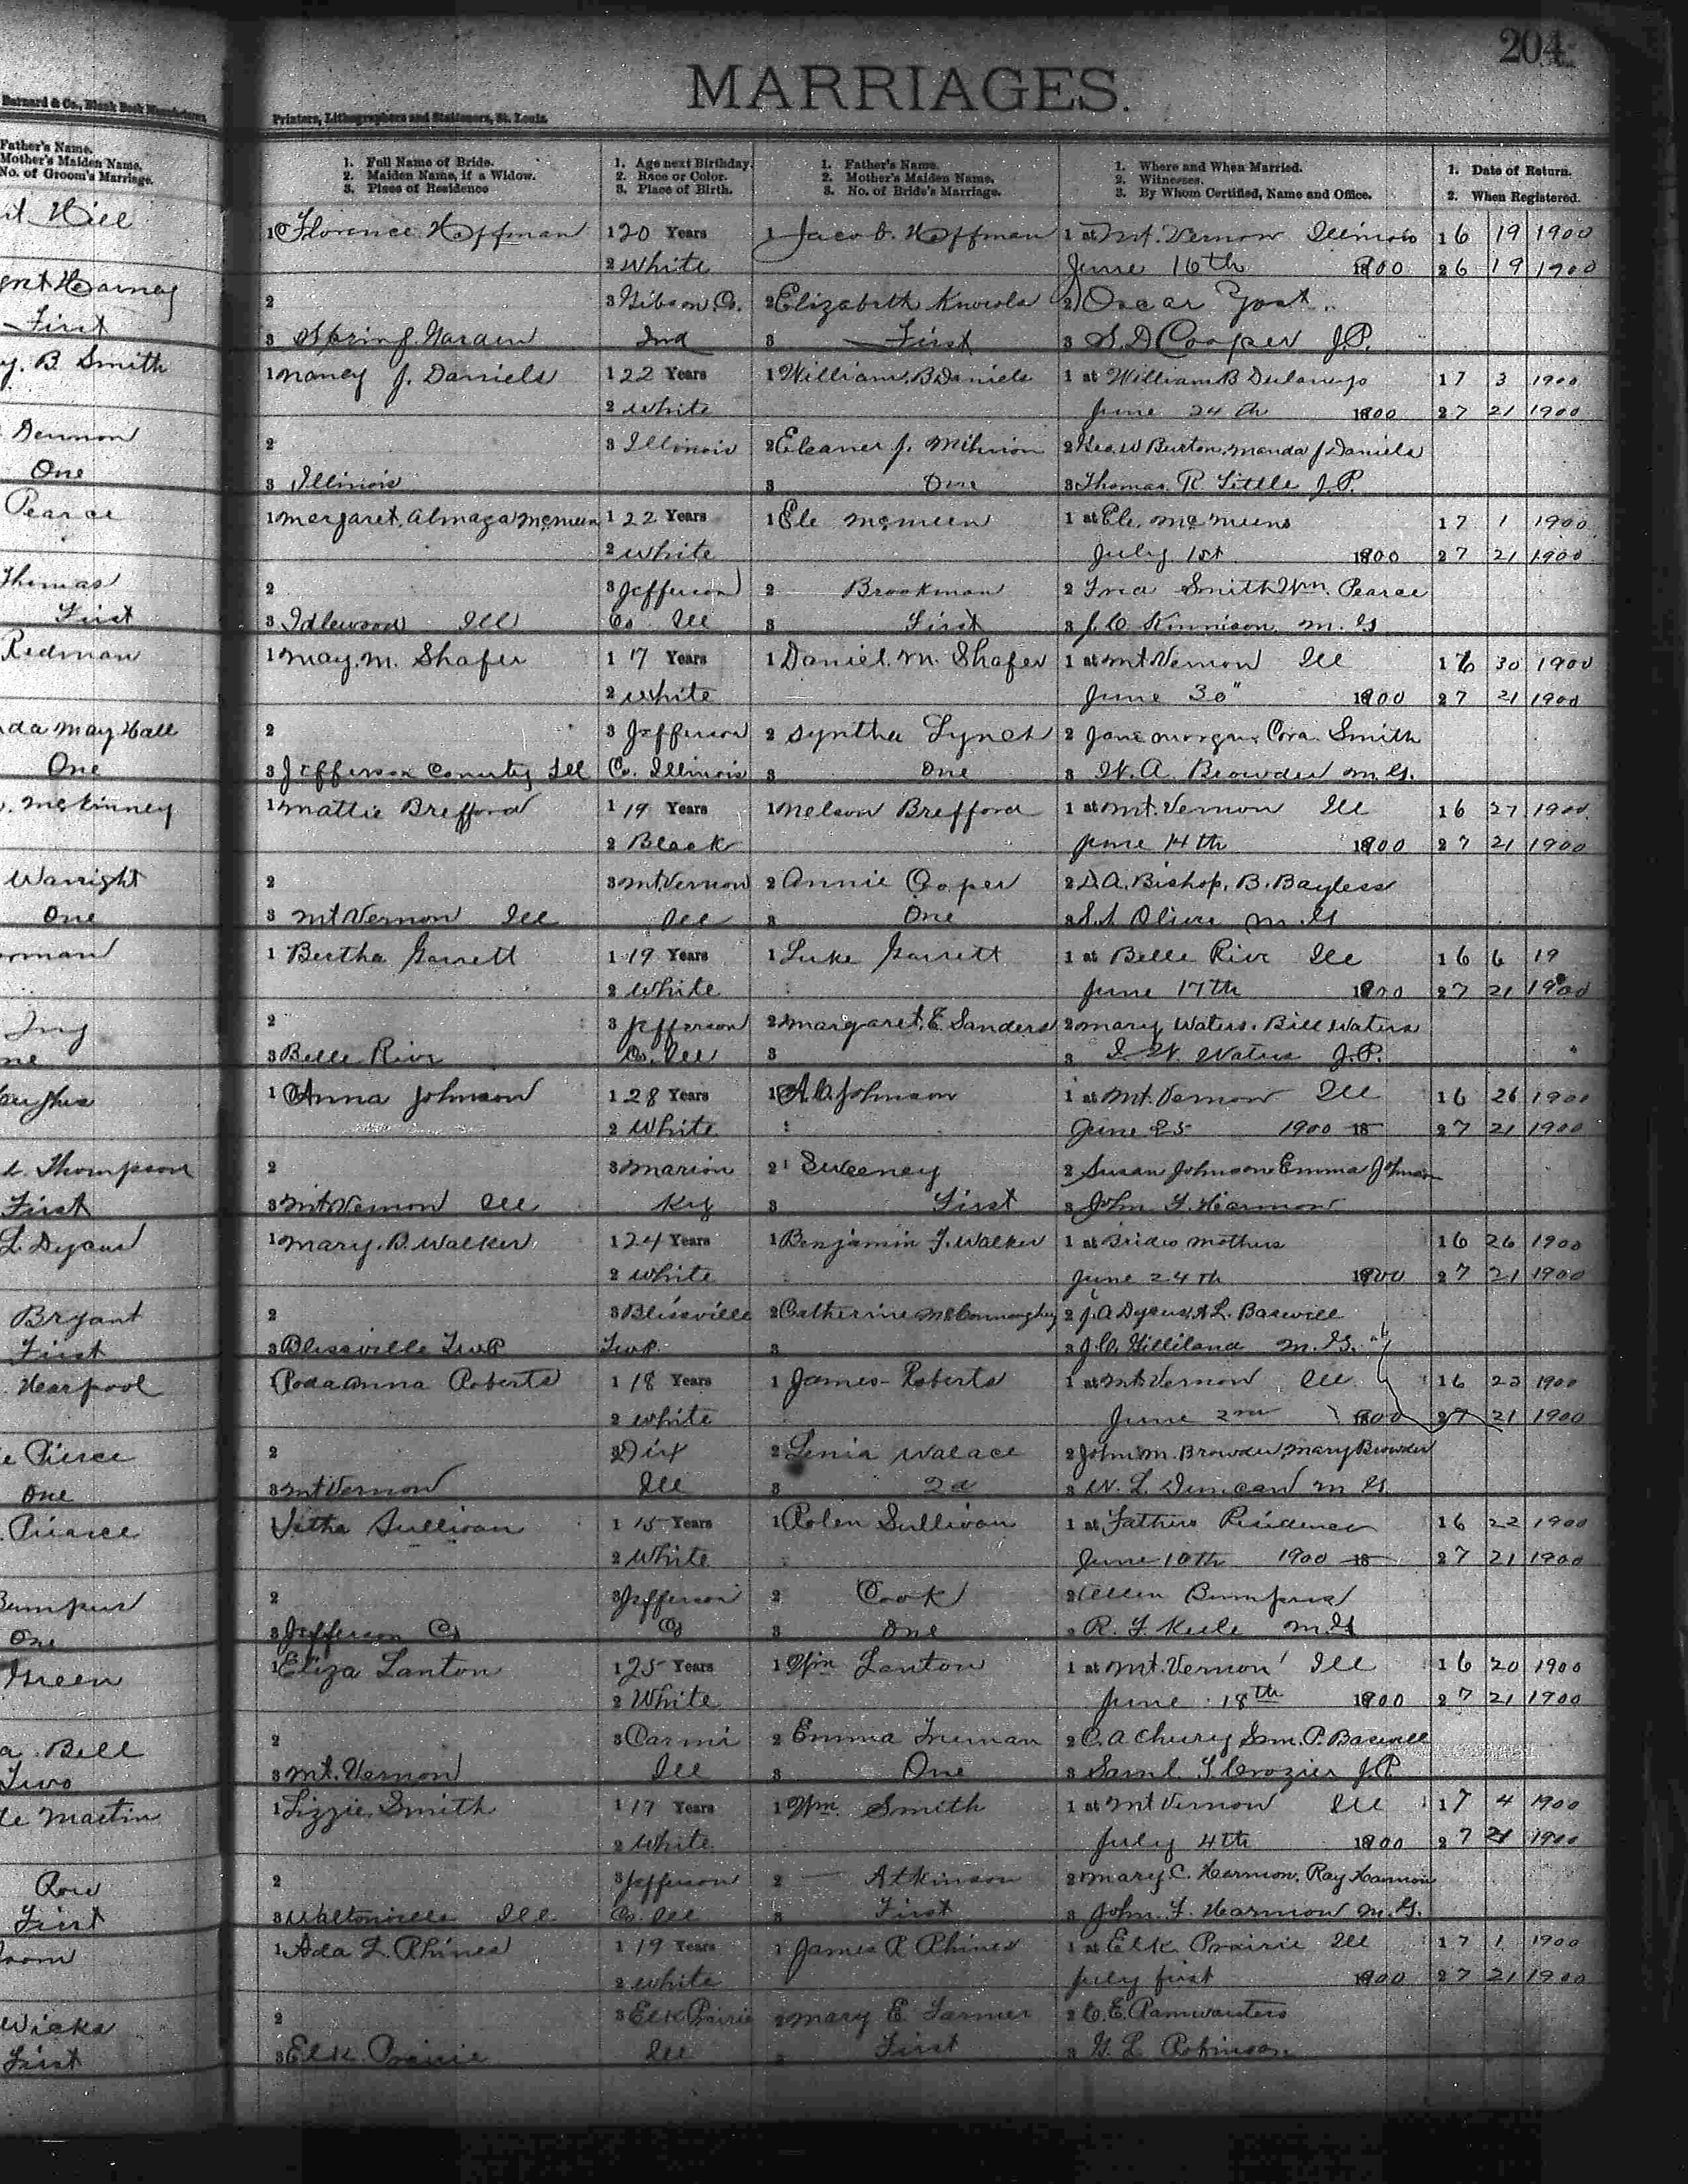 204
MARRIAGES.
Barnard & Co., Blank Book Manufacturers
Printers, Lithographers and Stationers, St. Louis.
Father's Name.
Mother's Maiden Name.
No. of Groom's Marriage.
1. Full Name of Bride.
2. Maiden Name, if a Widow.
3. Place of Residence
1. Age next Birthday.
2. Race or Color.
3. Place of Birth.
1. Father's Name.
2. Mother's Maiden Name.
3. No. of Bride's Marriage.
1. Where and When Married.
2. Witnesses.
3. By Whom Certified, Name and Office.
1. Date of Return.
2. When Registered.
Hill
1 Florence Hoffman 1 20 Years 1 Jacob Hoffman 1 at Mt. Vernon Illinois 1 6 19 1900
2 White June 16th 1900 2 6 19 1900
2 3 Gibson Co. 2 Elizabeth 2 Oscar Yost
First
3 Spring Garden Ind 3 First 3 S. D Cooper J.P.
y. B Smith
1 Nancy J. Daniels 1 22 Years 1 William B Daniels 1 at William B 1 7 3 1900
2 White June 24th 1900 2 7 21 1900
2 3 Illinois 2 Eleaner J. 2 Geo. W Burton, Manda J Daniels
One
3 Illinois 3 One 3 Thomas R Little J.P.
Pearce
1 Margaret McMeen 1 22 Years 1 Ele McMeen 1 at Ele McMeens 1 7 1 1900
2 White July 1st 1900 2 7 21 1900
Thomas
2 3 Jefferson 2 Brookman 2 Smith Wm. Pearce
First
3 Idlewood Ill Co Ill 3 First 3 J. C. Kinnison M. G
Redman
1 May M. Shafer 1 17 Years 1 Daniel M. Shafer 1 at Mt Vernon Ill 1 6 30 1900
2 White June 30" 1900 2 7 21 1900
da May Hall
2 3 Jefferson 2 Syntha Lynch 2 Jane Morgan Cora Smith
One
3 Jefferson County Ill Co. Illinois 3 One 3 W. A. Browder M. G.
McKinney
1 Mattie Brefford 1 19 Years 1 Nelson Brefford 1 at Mt. Vernon Ill 1 6 27 1900
2 Black June 14th 1900 2 7 21 1900
2 3 Mt. Vernon 2 Annie Cooper 2 D. A. Bishop, B. Bayless
One
3 Mt Vernon Ill Ill 3 One 3 Oliver M. G
1 Bertha Garrett 1 19 Years 1 Luke Garrett 1 at Belle Rive Ill 1 6 6 19
2 White June 17th 1900 2 7 21 1900
2 3 Jefferson 2 Margaret E. Sanders 2 Mary Waters. Bill Waters
3 Belle Rive Co. Ill 3 3 Waters J.P.
1 Anna Johnson 1 28 Years 1 A. C. Johnson 1 at Mt. Vernon Ill 1 6 26 1900
2 White June 25 1900 18 2 7 21 1900
Thompson
2 3 Marion 2 Sweeney 2 Susan Johnson Emma Johnson
First
3 Mt Vernon Ill Ky 3 First 3 John F. Harmon
L. Dycus
1 Mary B. Walker 1 24 Years 1 Benjamin F. Walker 1 at Brides Mothers 1 6 26 1900
2 White June 24th 1900 2 7 21 1900
Bryant
2 3 Blissville 2 Catherine McConnaughey 2 J. A Dycus, A. L. Baswell
First
3 Blissville Twp Twp. 3 3 J. C. Gilliland M. G.
1 Roda Anna Roberts 1 18 Years 1 James Roberts 1 at Mt. Vernon Ill 1 6 23 1900
2 White June 2nd 1900 2 7 21 1900
Pierce
2 3 Dix 2 Lenia Walace 2 John M. Browder, Mary Browder
One
3 Mt Vernon Ill 3 2d 3 W. L. Duncan M G.
Pierce
1 Sullivan 1 15 Years 1 Rolen Sullivan 1 at Fathers Residence 1 6 22 1900
2 White June 10th 1900 18 2 7 21 1900
Bumpus
2 3 Jefferson 2 Cook 2 Allen Bumpus
One
3 Jefferson Co Co 3 One 3 M. G
Green
1 Eliza Lanton 1 25 Years 1 Wm Lanton 1 at Mt. Vernon Ill 1 6 20 1900
2 White June 18th 1900 2 7 21 1900
Bell
2 3 Carmi 2 Emma Truman 2 C. A Sam. P. Baswell
Two
3 Mt. Vernon Ill 3 One 3 Saml. T. Crozier J.P
Martin
1 Lizzie Smith 1 17 Years 1 Wm. Smith 1 at Mt Vernon Ill 1 7 4 1900
2 White July 4th 1900 2 7 21 1900
2 3 Jefferson 2 Atkinson 2 Mary C. Harmon, Ray Harmon
First
3 Waltonville Ill. Co. Ill 3 First 3 John F. Harmon M. G.
1 Ada L. Rhines 1 19 Years 1 James R Rhines 1 at Elk Prairie Ill 1 7 1 1900
2 White July first 1900 2 7 21 1900
Wicks
2 3 Elk Prairie 2 Mary E. Farmer 2 C. E.
First
3 Elk Prairie Ill First 3 G. L Robinson